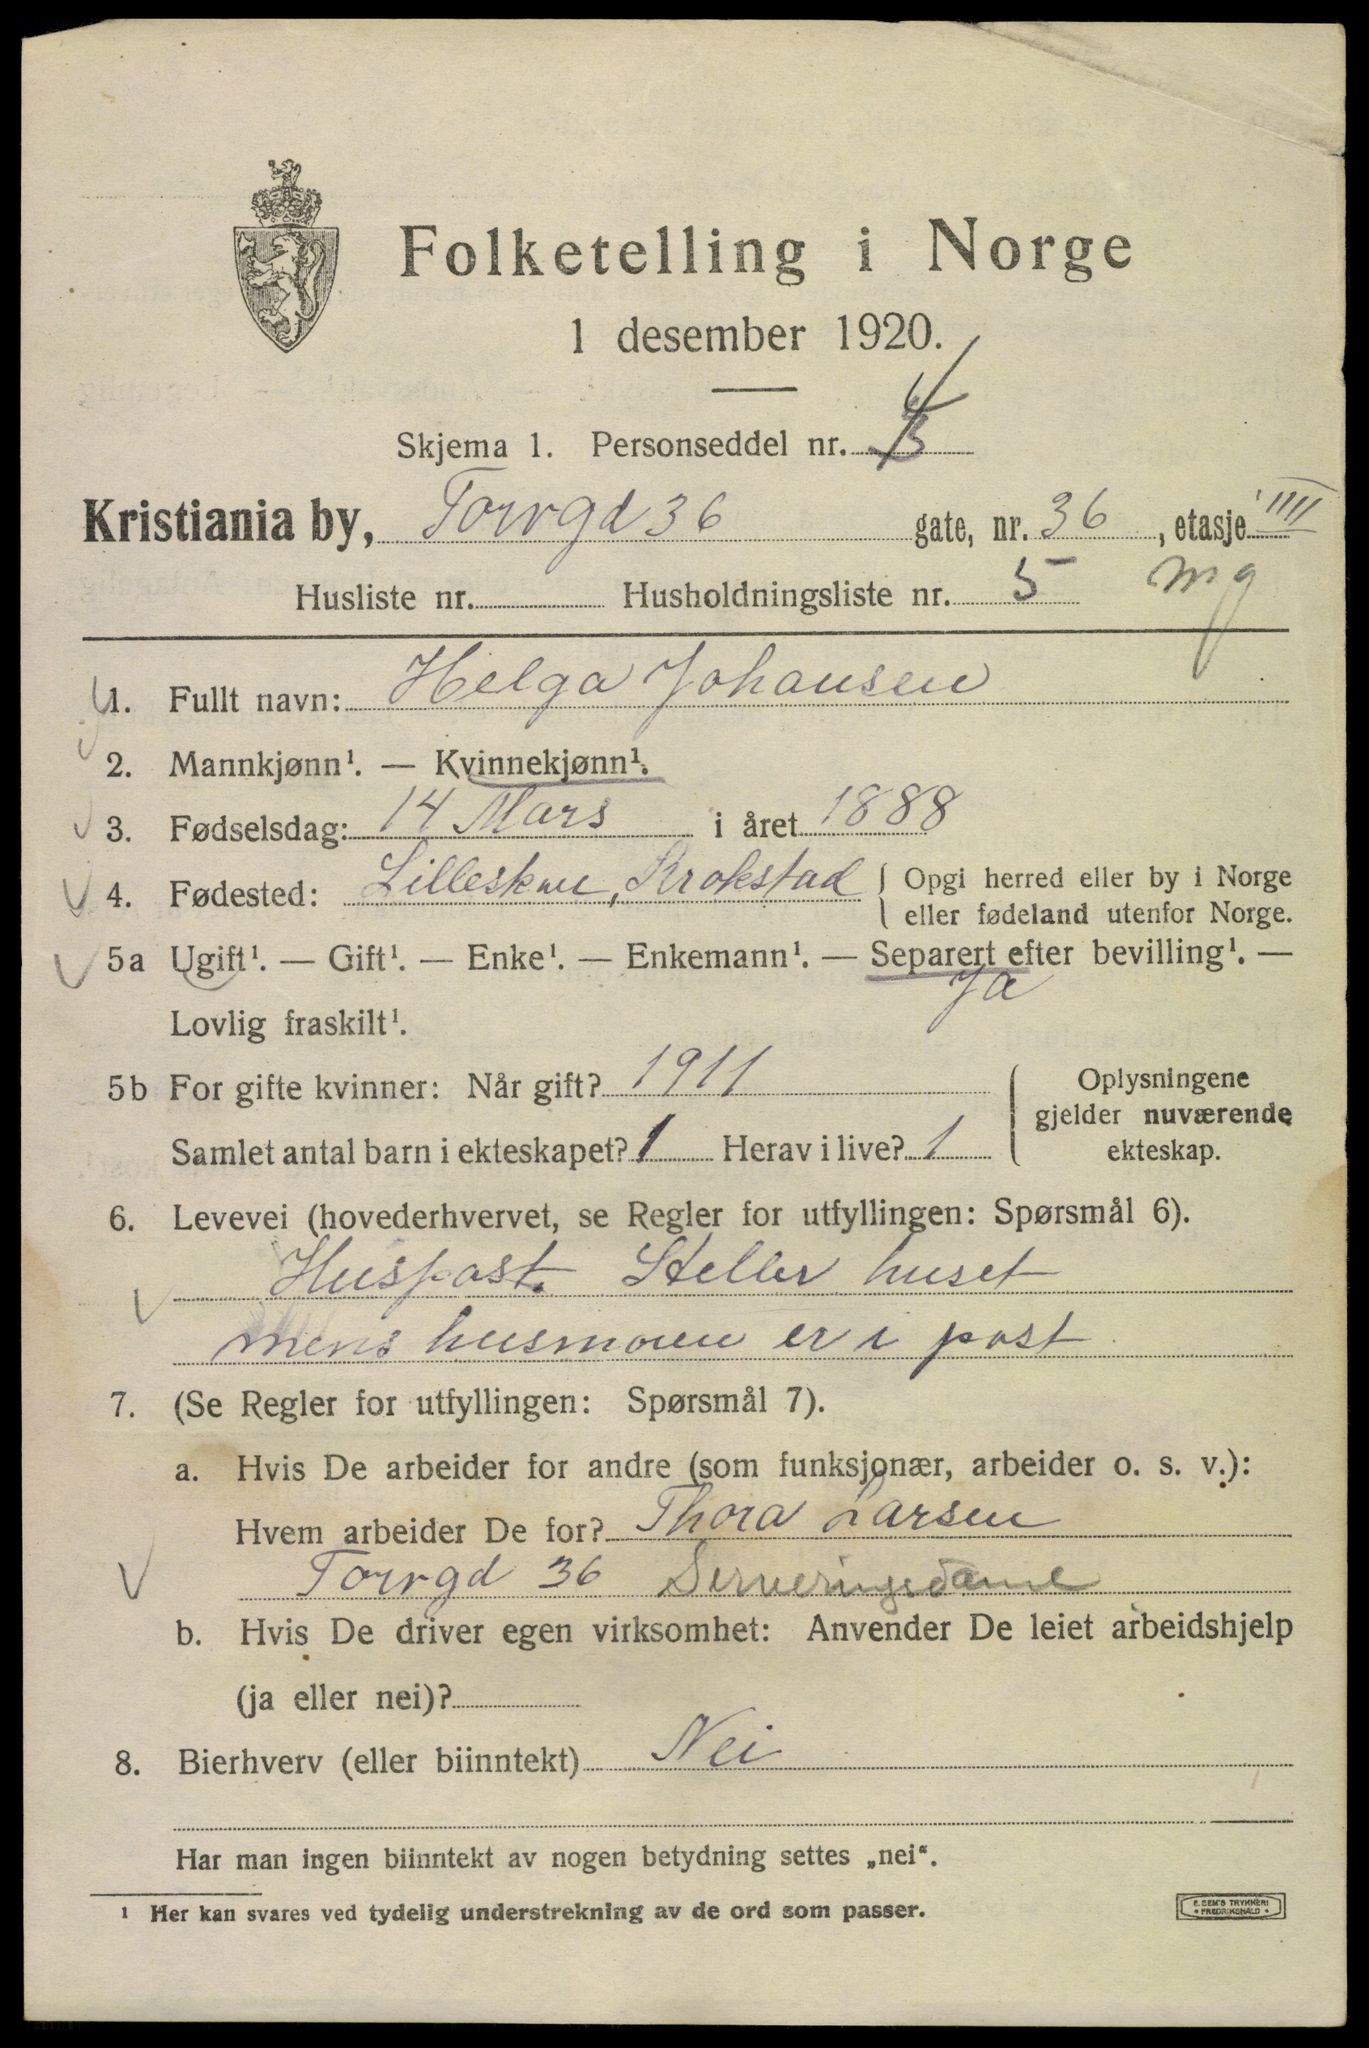 Folketelling i Norge
1 desember 1920.
Skjema 1. Personseddel nr. 4
Kristiania by, Torvgd 36 gate, nr. 36, etasje IIII
Husliste nr. Husholdningsliste nr. 5 mg
1. Fullt navn: Helga Johansen
2. Mannkjønn¹. — Kvinnekjønn¹.
3. Fødselsdag: 14 Mars i året 1888
4. Fødested: Lilleskau, Krokstad { Opgi herred eller by i Norge
eller fødeland utenfor Norge.
5a Ugift¹. — Gift¹. — Enke¹. — Enkemann¹. — Separert efter bevilling¹. —
Ja
Lovlig fraskilt¹.
5b For gifte kvinner: Når gift? 1911
Samlet antal barn i ekteskapet? 1 Herav i live? 1
Oplysningene
gjelder nuværende
ekteskap.
6. Levevei (hovederhvervet, se Regler for utfyllingen: Spørsmål 6).
Huspost. Steller huset
mens husmoren er i post
7. (Se Regler for utfyllingen: Spørsmål 7).
a. Hvis De arbeider for andre (som funksjonær, arbeider o. s. v.):
Hvem arbeider De for? Thora Larsen
Torvgd 36 Serveringsdame
b. Hvis De driver egen virksomhet: Anvender De leiet arbeidshjelp
(ja eller nei)?
8. Bierhverv (eller biinntekt) Nei
Har man ingen biinntekt av nogen betydning settes „nei“.
¹ Her kan svares ved tydelig understrekning av de ord som passer.
E. SEM'S TRYKKERI
• FREDRIKSHALD •